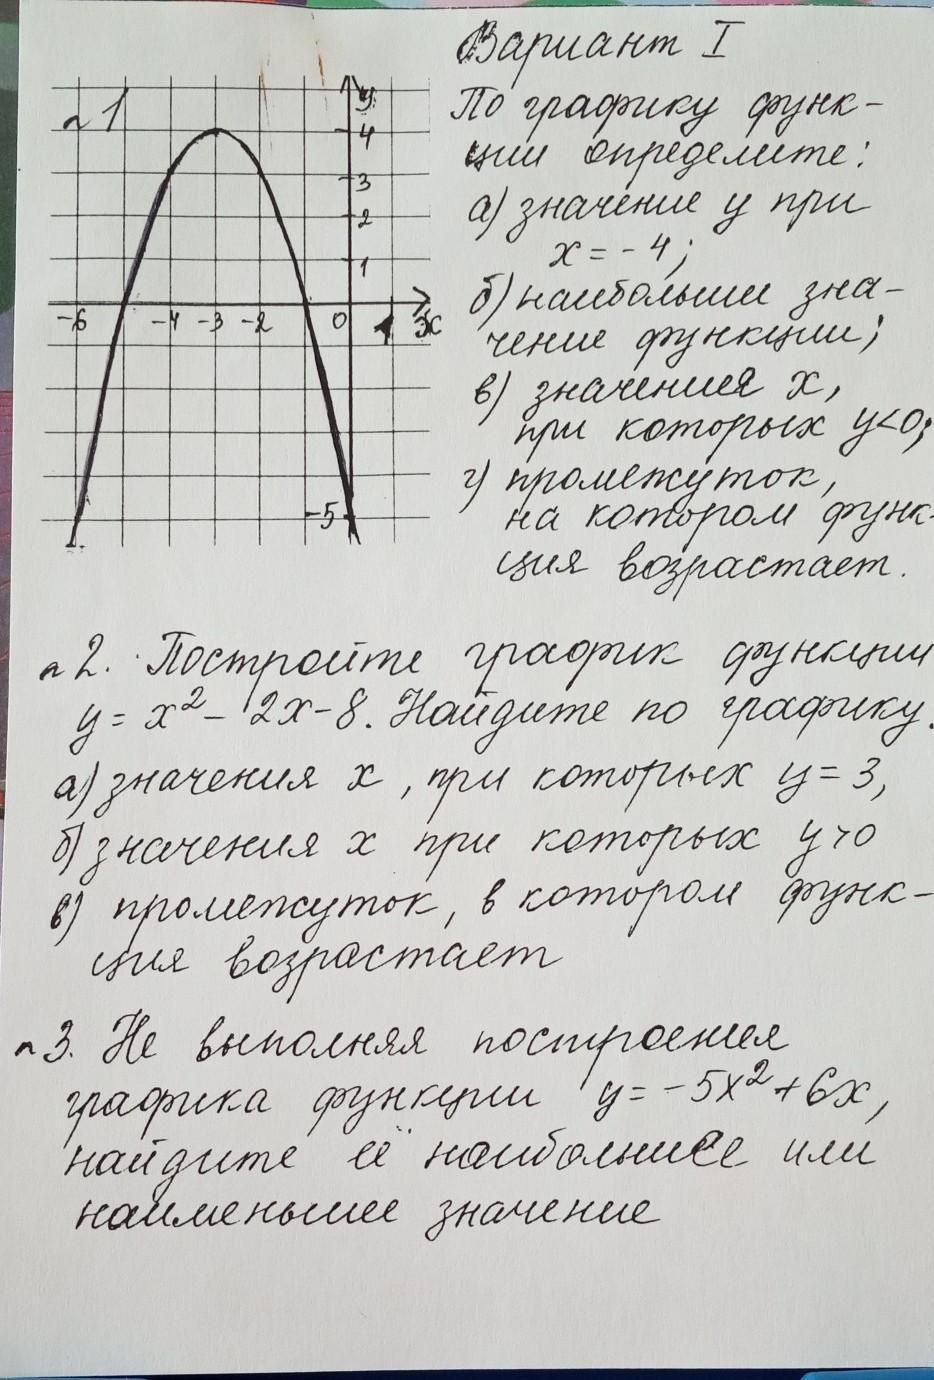 Вариант I
№1
По графику функ-
ции определите:
а) значение y при
x = -4;
б) наибольшее зна-
чение функции;
в) значения x,
при которых y<0;
г) промежуток,
на котором функ-
ция возрастает.
y
4
3
2
1
-6 -4 -3 -2 0 1 x
-5
№2. Постройте график функции
y = x² - 2x - 8. Найдите по графику.
а) значения x, при которых y = 3,
б) значения x при которых y>0
в) промежуток, в котором функ-
ция возрастает
№3. Не выполняя построения
графика функции y = -5x² + 6x,
найдите её наибольшее или
наименьшее значение